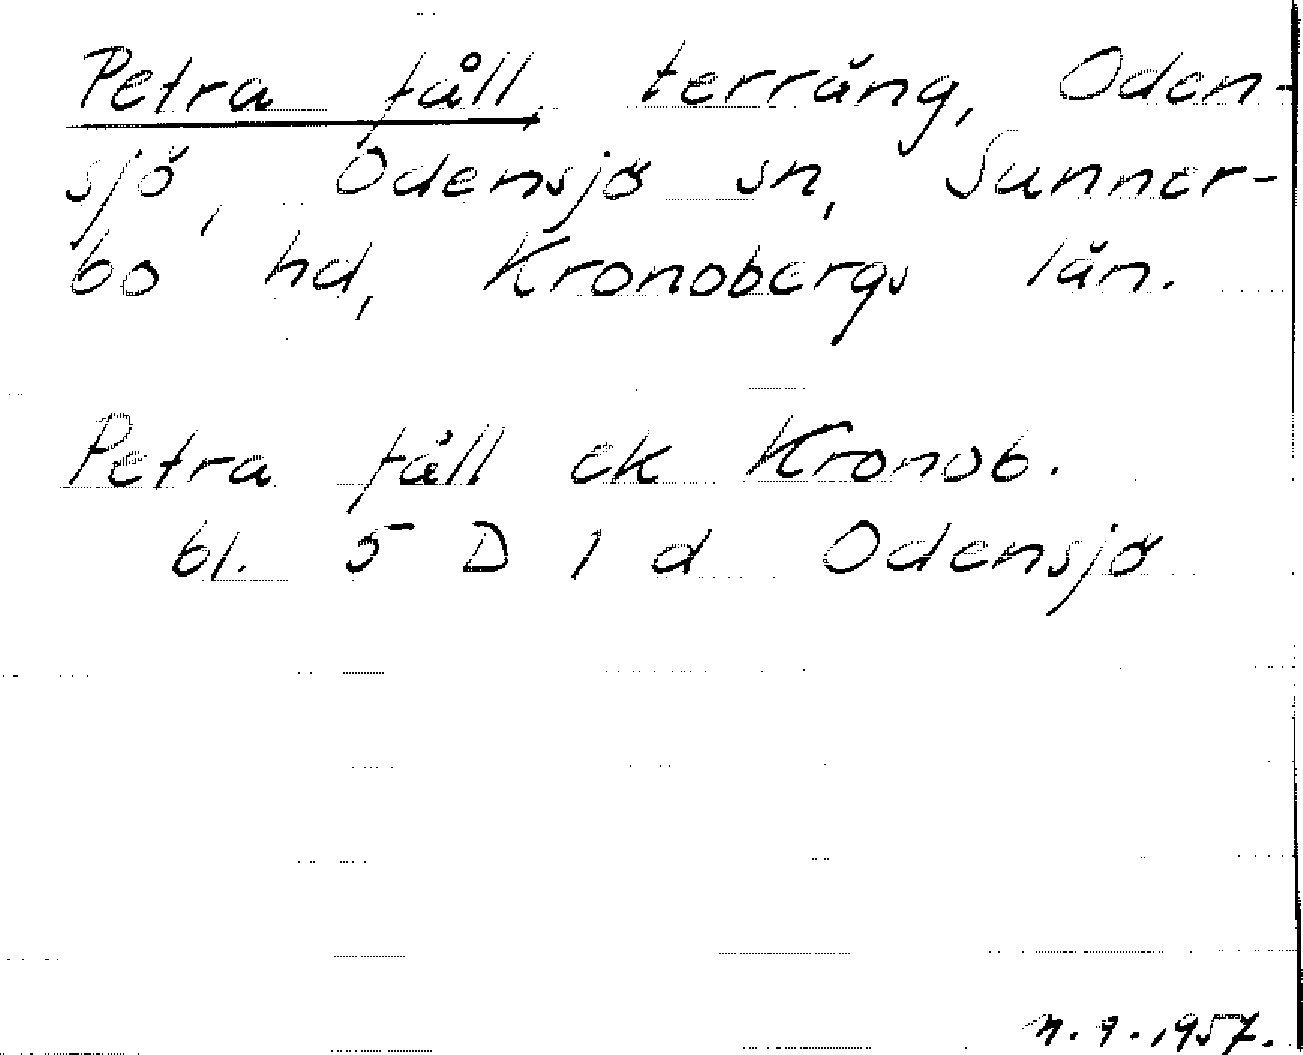 Petra fåll, terräng, Oden-
sjö, Odensjö sn, Sunner-
bo hd, Kronobergs län.
Petra fåll ek Kronob.
bl. 5 D 1 d Odensjö
1957.